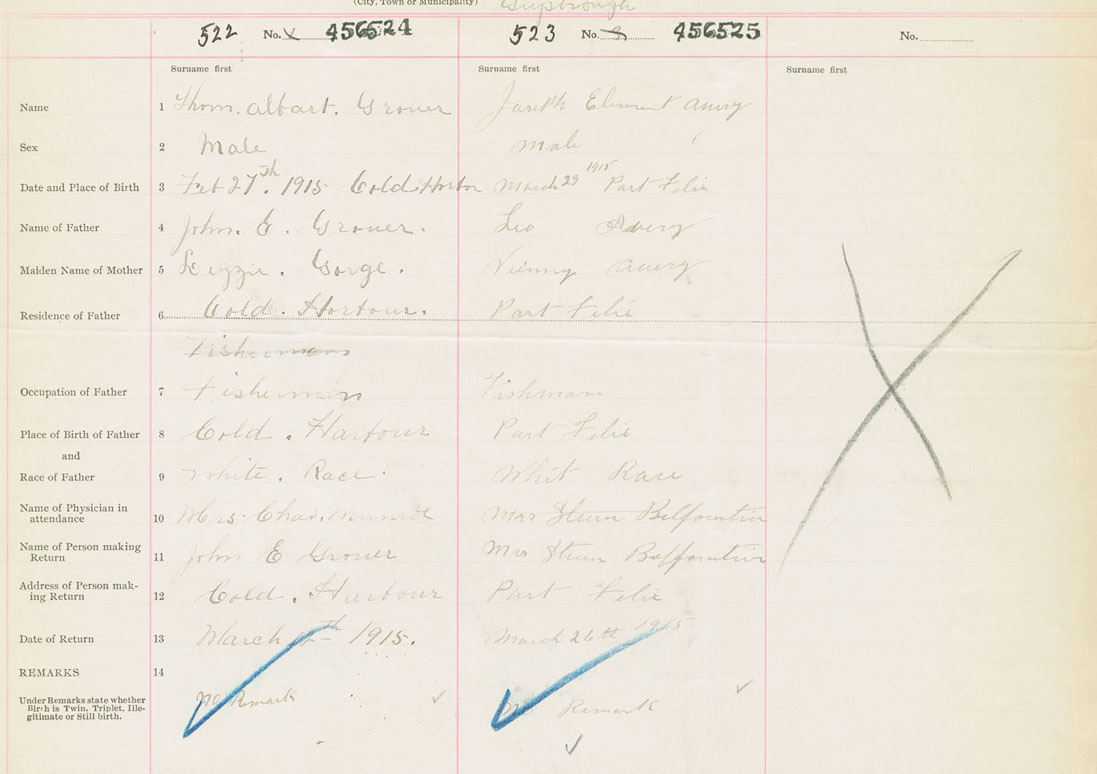 (City, Town or Municipality) Guysborough
522 No. 456524
523 No. 456525
No.
Surname first Surname first Surname first
Name 1 Thom. Albart. Grover Joseth Element Avery
Sex 2 Male male
Date and Place of Birth 3 Feb 27th. 1915 Cold Horbor March 23 1915 Part Felix
Name of Father 4 John. E. Grover. Leo Avery
Maiden Name of Mother 5 Lizzie. Gorge. Vinny Avery
Residence of Father 6 Cold. Horbour. Part Felix
Fishermans
Occupation of Father 7 Fisherman Fishman
Place of Birth of Father 8 Cold. Harbour Part Felix
and
Race of Father 9 White. Race. Whit Race
Name of Physician in
attendance 10 Mrs. Chas. Munroe Mrs
Name of Person making
Return 11 John E Grover Mrs
Address of Person mak-
ing Return 12 Cold. Harbour Part Felix
Date of Return 13 March 1915. March 26th 1915
REMARKS 14
Under Remarks state whether
Birth is Twin, Triplet, Ille-
gitimate or Still birth. No Remark No Remark